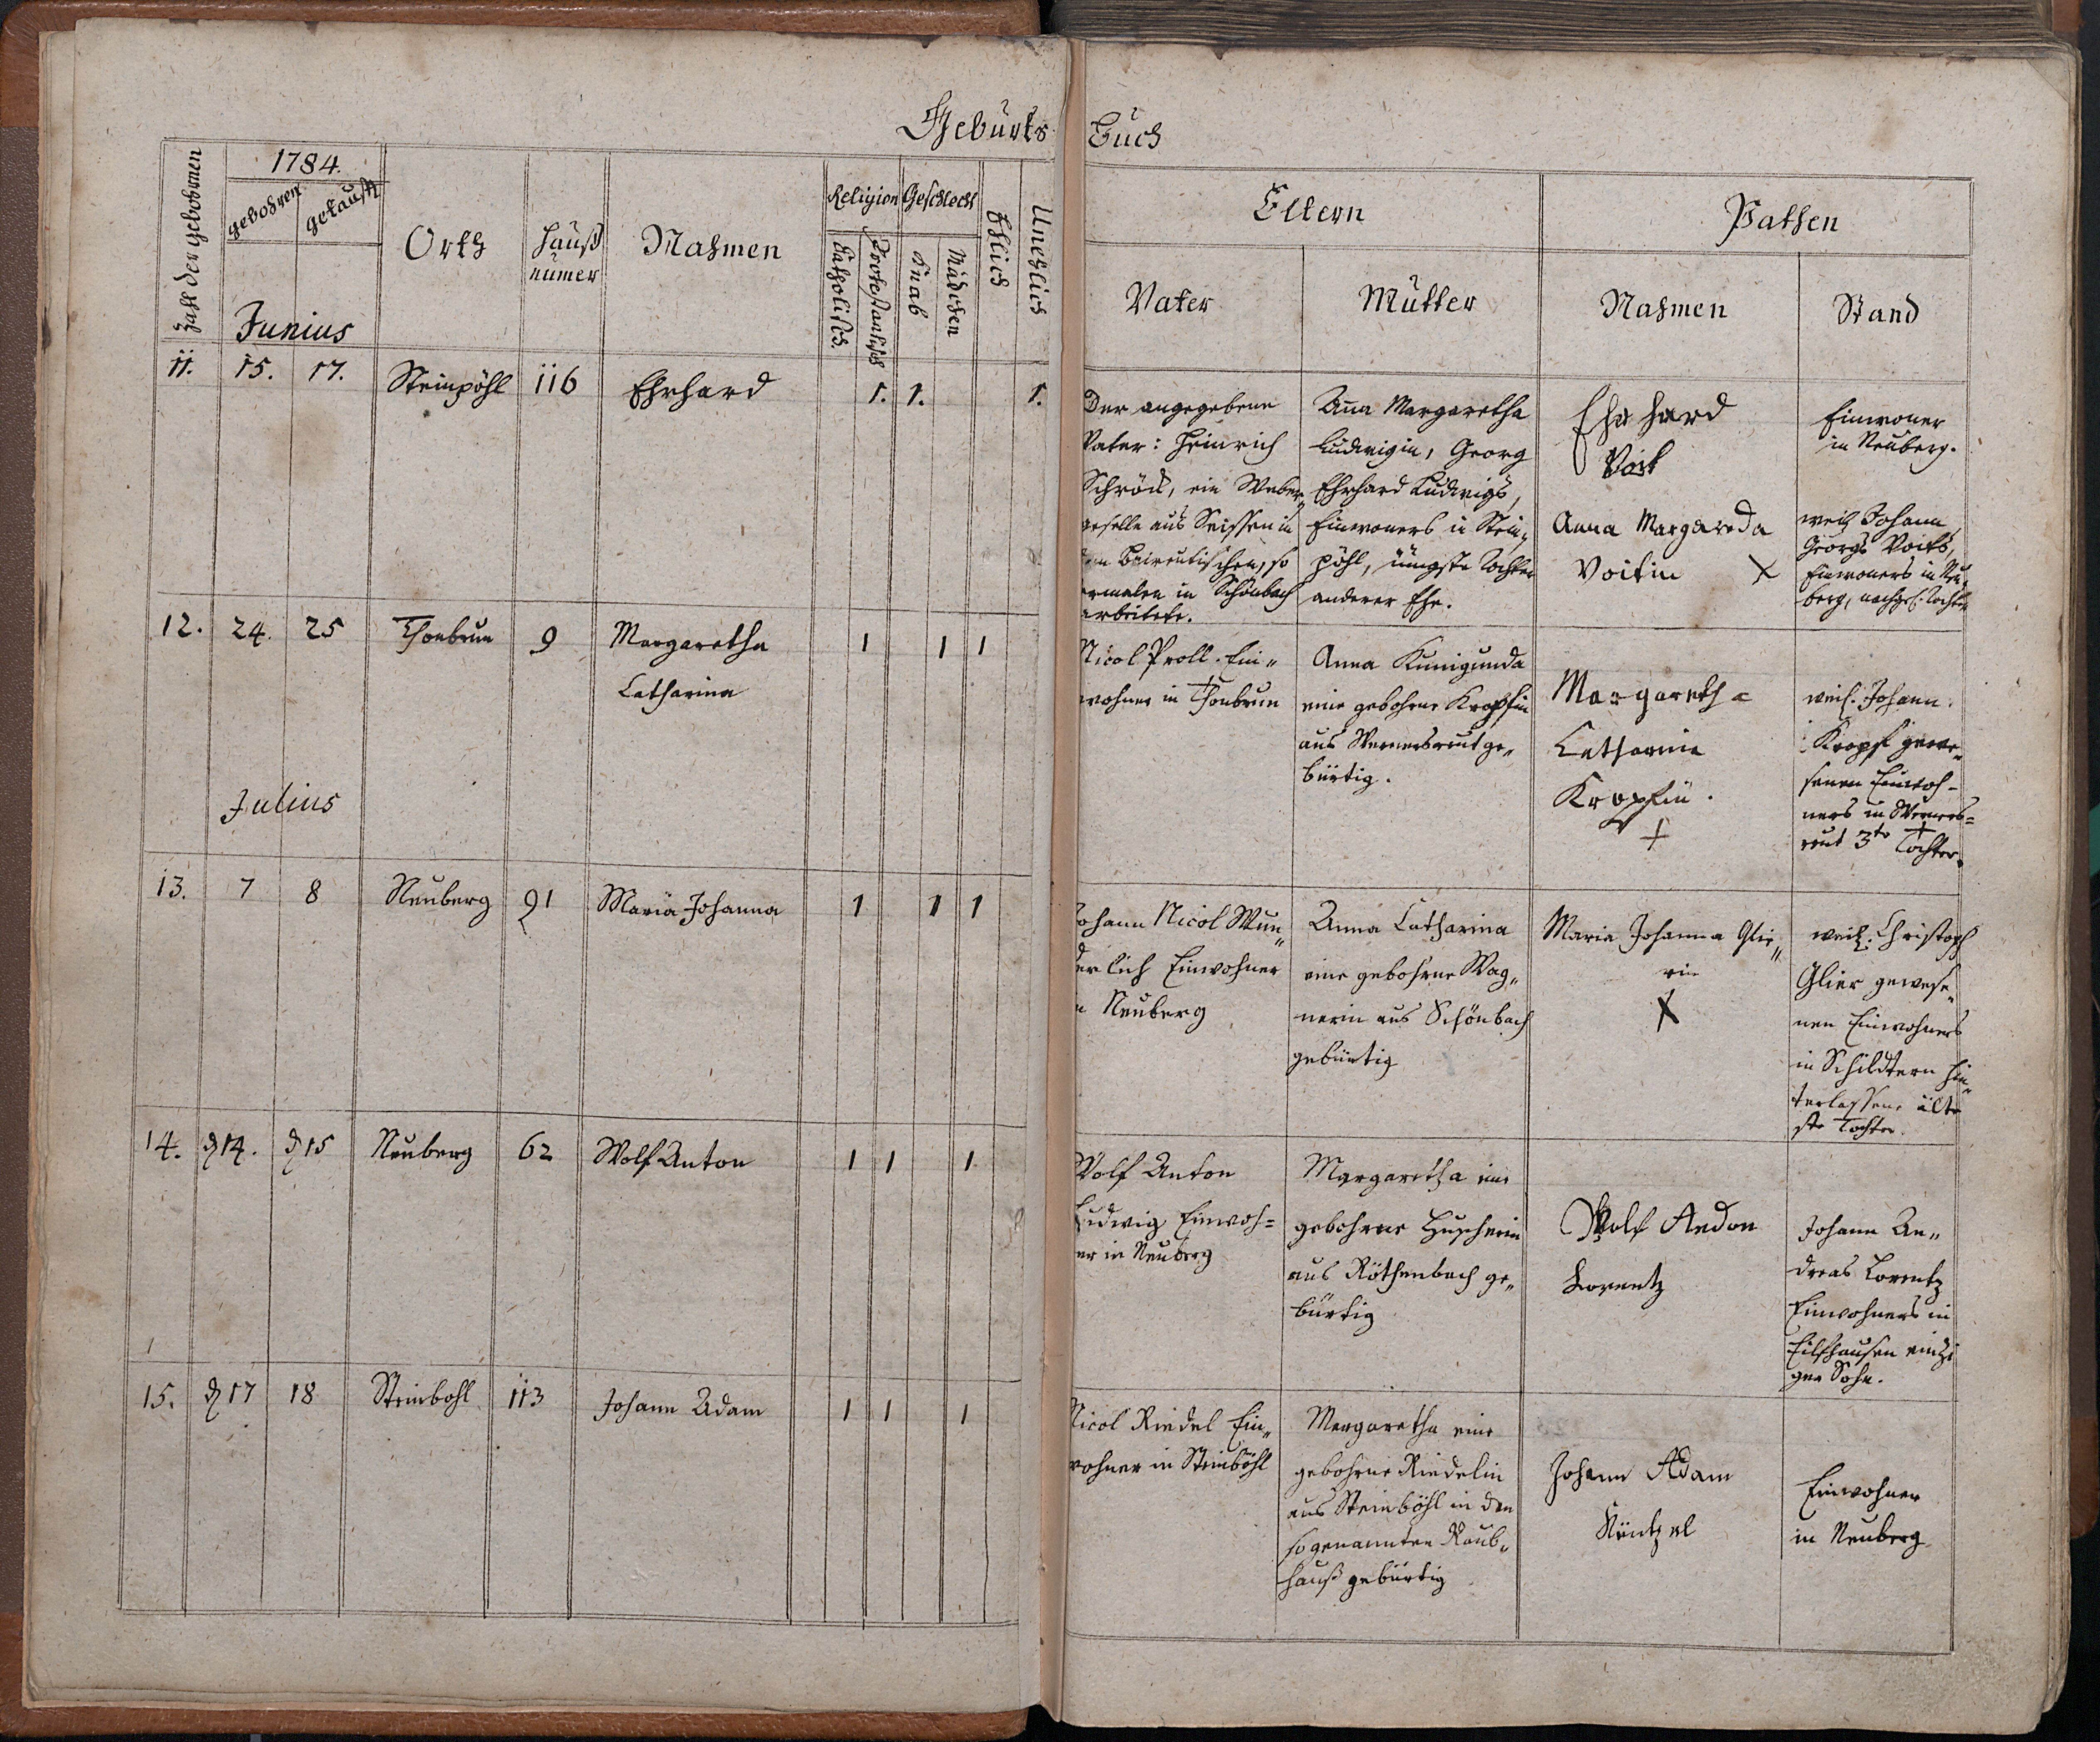 Geburts Buch
Zahl der gebohrnen
1784.
gebohren
getauft
Junius
Orth
Hauß
numer
Nahmen
Religion
Catholisch.
Protestantisch
Geschlecht
Knab
Mädchen
Ehlich
Unehlich
Eltern
Vater
Mutter
Pathen
Nahmen
Stand
11. 15. 17. Steinpöhl 116 Ehrhard 1. 1. 1.
Der angegebene
Vater: Heinrich
Schröck, ein Weber
geselle aus Seissen in
Baireutischen, so
in Schönbach
arbeitete.
Anna Margaretha
Ludwigin, Georg
Ehrhard Ludwigs,
Einwoners in Stein-
pöhl, jüngste Tochter
anderer Ehe.
Ehrhard
Voit
Einwoner
in Neuberg.
Anna Margareda
Voitin X
weil Johann
Georgs Voits,
Einwoners in Neu-
berg, nachgel. Tochter
12. 24. 25 Thonbrun 9 Margaretha
Catharina
1 1 1
Nicol Proll. Ein-
wohner in Thonbrun
Anna Kunigunda
eine gebohrne Kropfin
aus Wernersreut ge-
bürtig.
Margaretha
Catharina
Kropfin.
+
weil. Johann
Kropf gewe-
senen Einwoh-
ners in Werners-
reut 3te Tochter.
+
Julius
13. 7 8 Neuberg 91 Maria Johanna 1 1 1
Johann Nicol Wun-
derlich Einwohner
in Neuberg
Anna Catharina
eine gebohrne Wag-
nerin aus Schönbach
gebürtig
Maria Johanna Glie-
rin
X
weil. Christoph
Glier gewese-
nen Einwohners
in Schildtern hin-
terlassene älte
ste Tochter.
14. d 14. d 15 Neuberg 62 Wolf Anton 1 1 1
Wolf Anton
Ludwig Einwoh-
ner in Neuberg
Margaretha eine
gebohrne Huscherin
aus Röthenbach ge-
bürtig
Wolf Andon
Lorentz
Johann An-
dreas Lorentz
Einwohners in
Eilfhausen einzi
ger Sohn.
15. d 17 18 Steinbohl 113 Johann Adam 1 1 1
Nicol Riedel Ein-
wohner in Steinböhl
Margaretha eine
gebohrne Riedelin
aus Steinböhl in den
sogenannten Raub-
hauß gebürtig
Johann Adam
Küntzel
Einwohner
in Neuberg